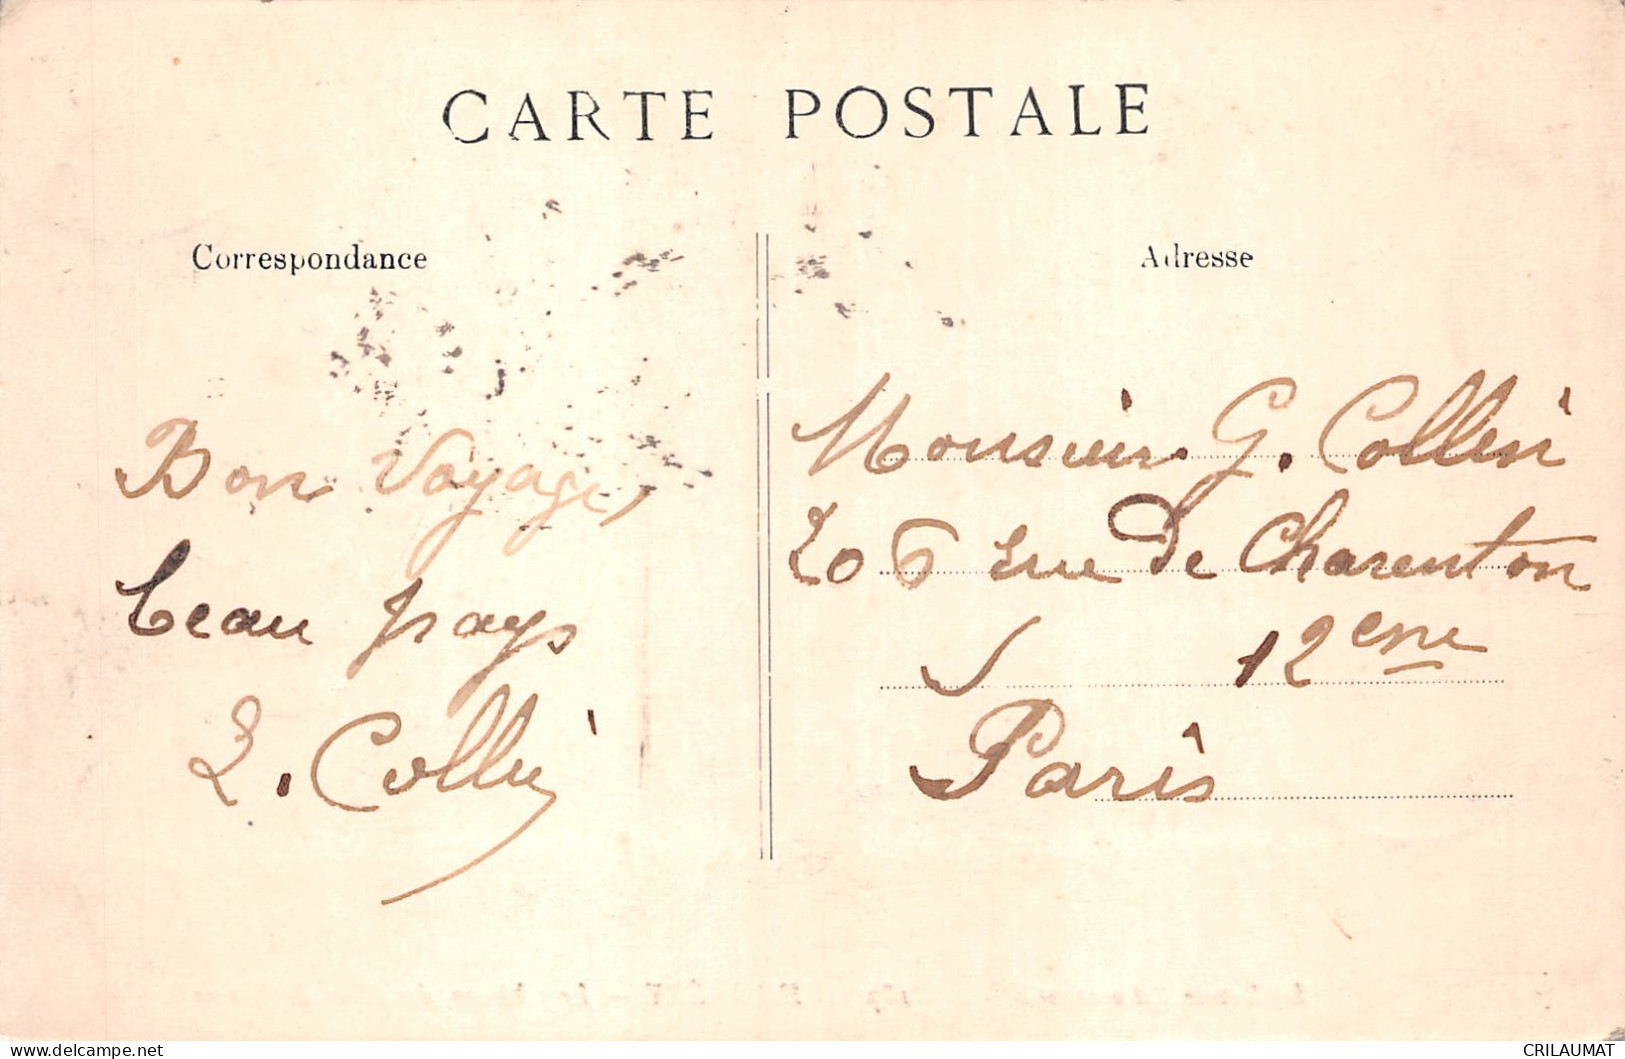 CARTE POSTALE
Correspondance
Bon Voyage,
beau pays
L. Collin
Adresse
Monsieur G. Collin
206 rue de Charenton
12eme
Paris
CRILAUMAT